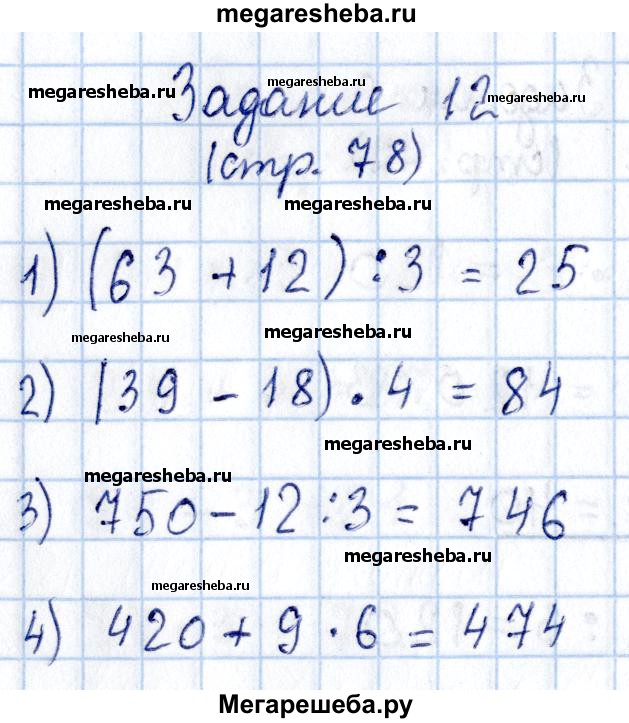 megaresheba.ru
megaresheba.ru megaresheba.ru megaresheba.ru
Задание 12
(стр. 78)
megaresheba.ru megaresheba.ru
1) (63 + 12) : 3 = 25
megaresheba.ru megaresheba.ru
2) (39 - 18) · 4 = 84
megaresheba.ru
megaresheba.ru
3) 750 - 12 : 3 = 746
megaresheba.ru
megaresheba.ru
4) 420 + 9 · 6 = 474
Мегарешеба.ру